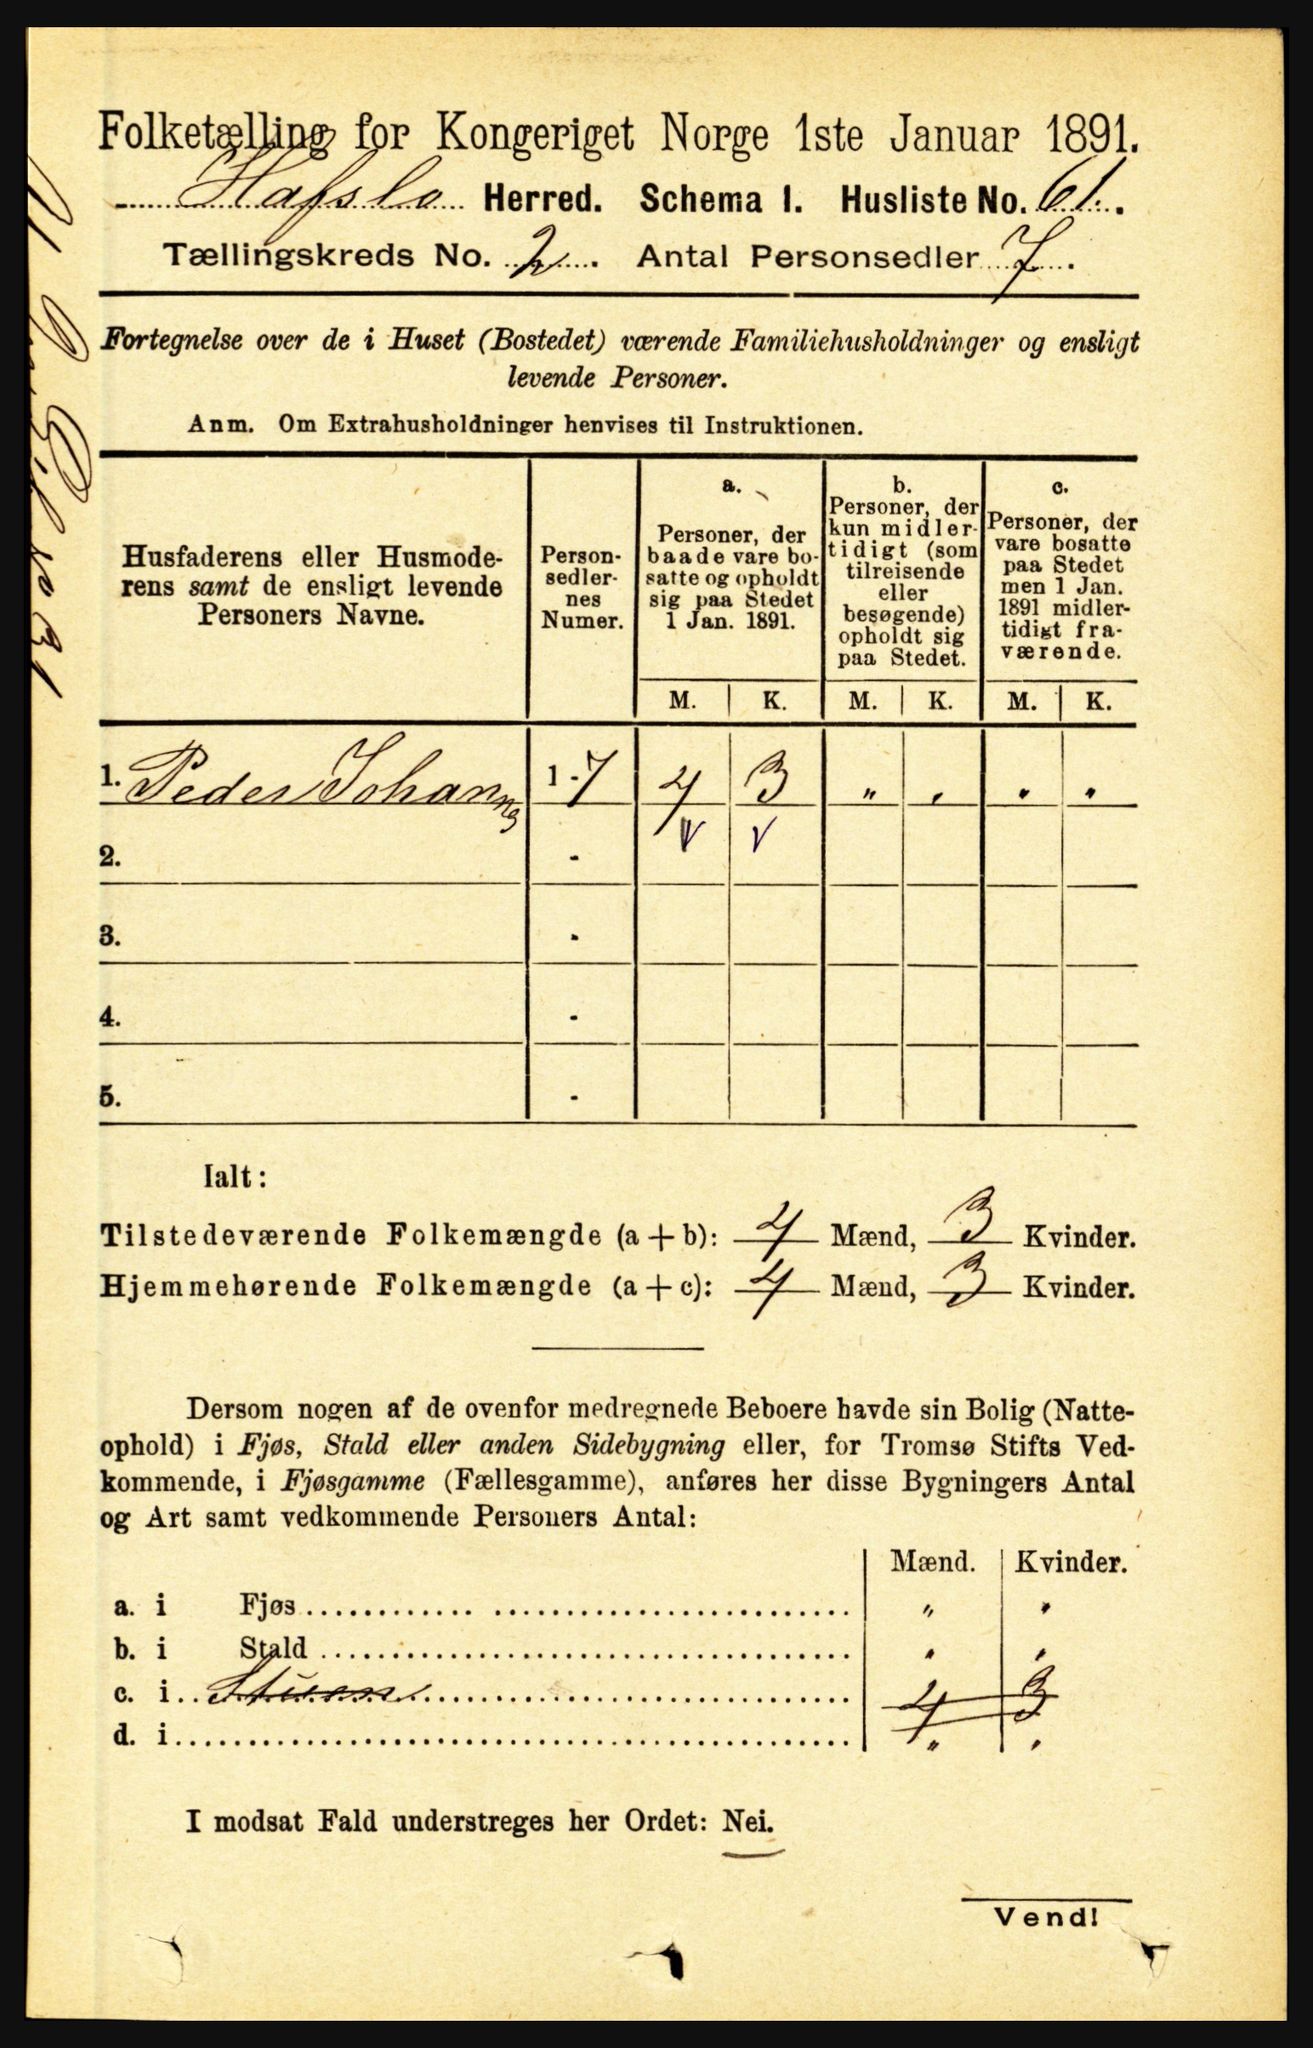 Folketælling for Kongeriget Norge 1ste Januar 1891.
Hafslo Herred. Schema I. Husliste No. 61.
Tællingskreds No. 2. Antal Personsedler 7.
Fortegnelse over de i Huset (Bostedet) værende Familiehusholdninger og ensligt
levende Personer.
Anm. Om Extrahusholdninger henvises til Instruktionen.
Husfaderens eller Husmode-
rens samt de ensligt levende
Personers Navne.
Person-
sedler-
nes
Numer.
a.
Personer, der
baade vare bo-
satte og opholdt
sig paa Stedet
1 Jan. 1891.
b.
Personer, der
kun midler-
tidigt (som
tilreisende
eller
besøgende)
opholdt sig
paa Stedet.
c.
Personer, der
vare bosatte
paa Stedet
men 1 Jan.
1891 midler-
tidigt fra-
værende.
M. K. M. K. M. K.
1. Peder Johannes 1-7 4 3 " " " "
2. - V V
3. -
4. -
5. -
Ialt:
Tilstedeværende Folkemængde (a+b): 4 Mænd, 3 Kvinder.
Hjemmehørende Folkemængde (a+c): 4 Mænd, 3 Kvinder.
Dersom nogen af de ovenfor medregnede Beboere havde sin Bolig (Natte-
ophold) i Fjøs, Stald eller anden Sidebygning eller, for Tromsø Stifts Ved-
kommende, i Fjøsgamme (Fællesgamme), anføres her disse Bygningers Antal
og Art samt vedkommende Personers Antal:
Mænd. Kvinder.
a. i Fjøs " "
b. i Stald " "
c. i Stuen 4 3
d. i " "
I modsat Fald understreges her Ordet: Nei.
Vend!